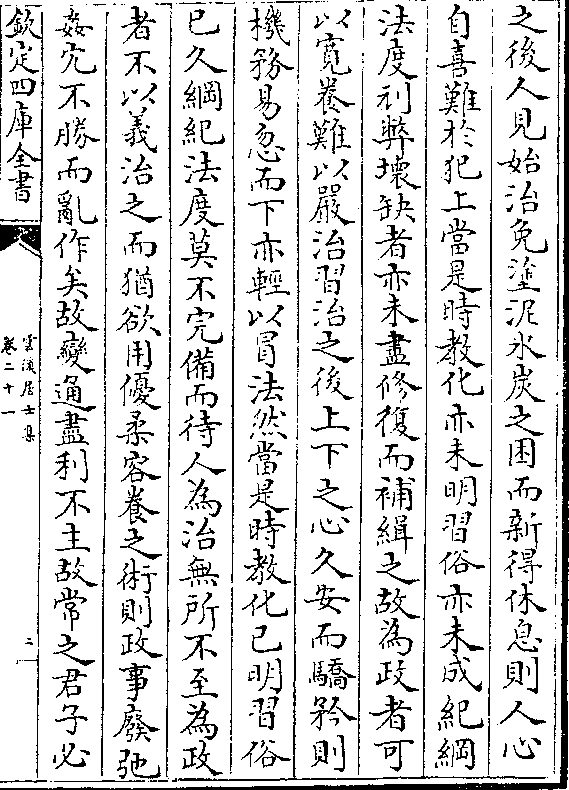 之後人見始治免塗泥水炭之困而新得休息則人心
自喜難於犯上當是時教化亦未明習俗亦未成紀綱
法度利弊壞缺者亦未盡修復而補緝之故為政者可
以寛養難以嚴治習治之後上下之心久安而驕矜則
機務易忽而下亦輕以冒法然當是時教化已明習俗
已久綱紀法度莫不完備而待人為治無所不至為政
者不以義治之而猶欲用優柔容養之術則政事廢弛
姦宄不勝而亂作矣故變通盡利不主故常之君子必
欽定四庫全書
雲溪居士集
卷二十一
二